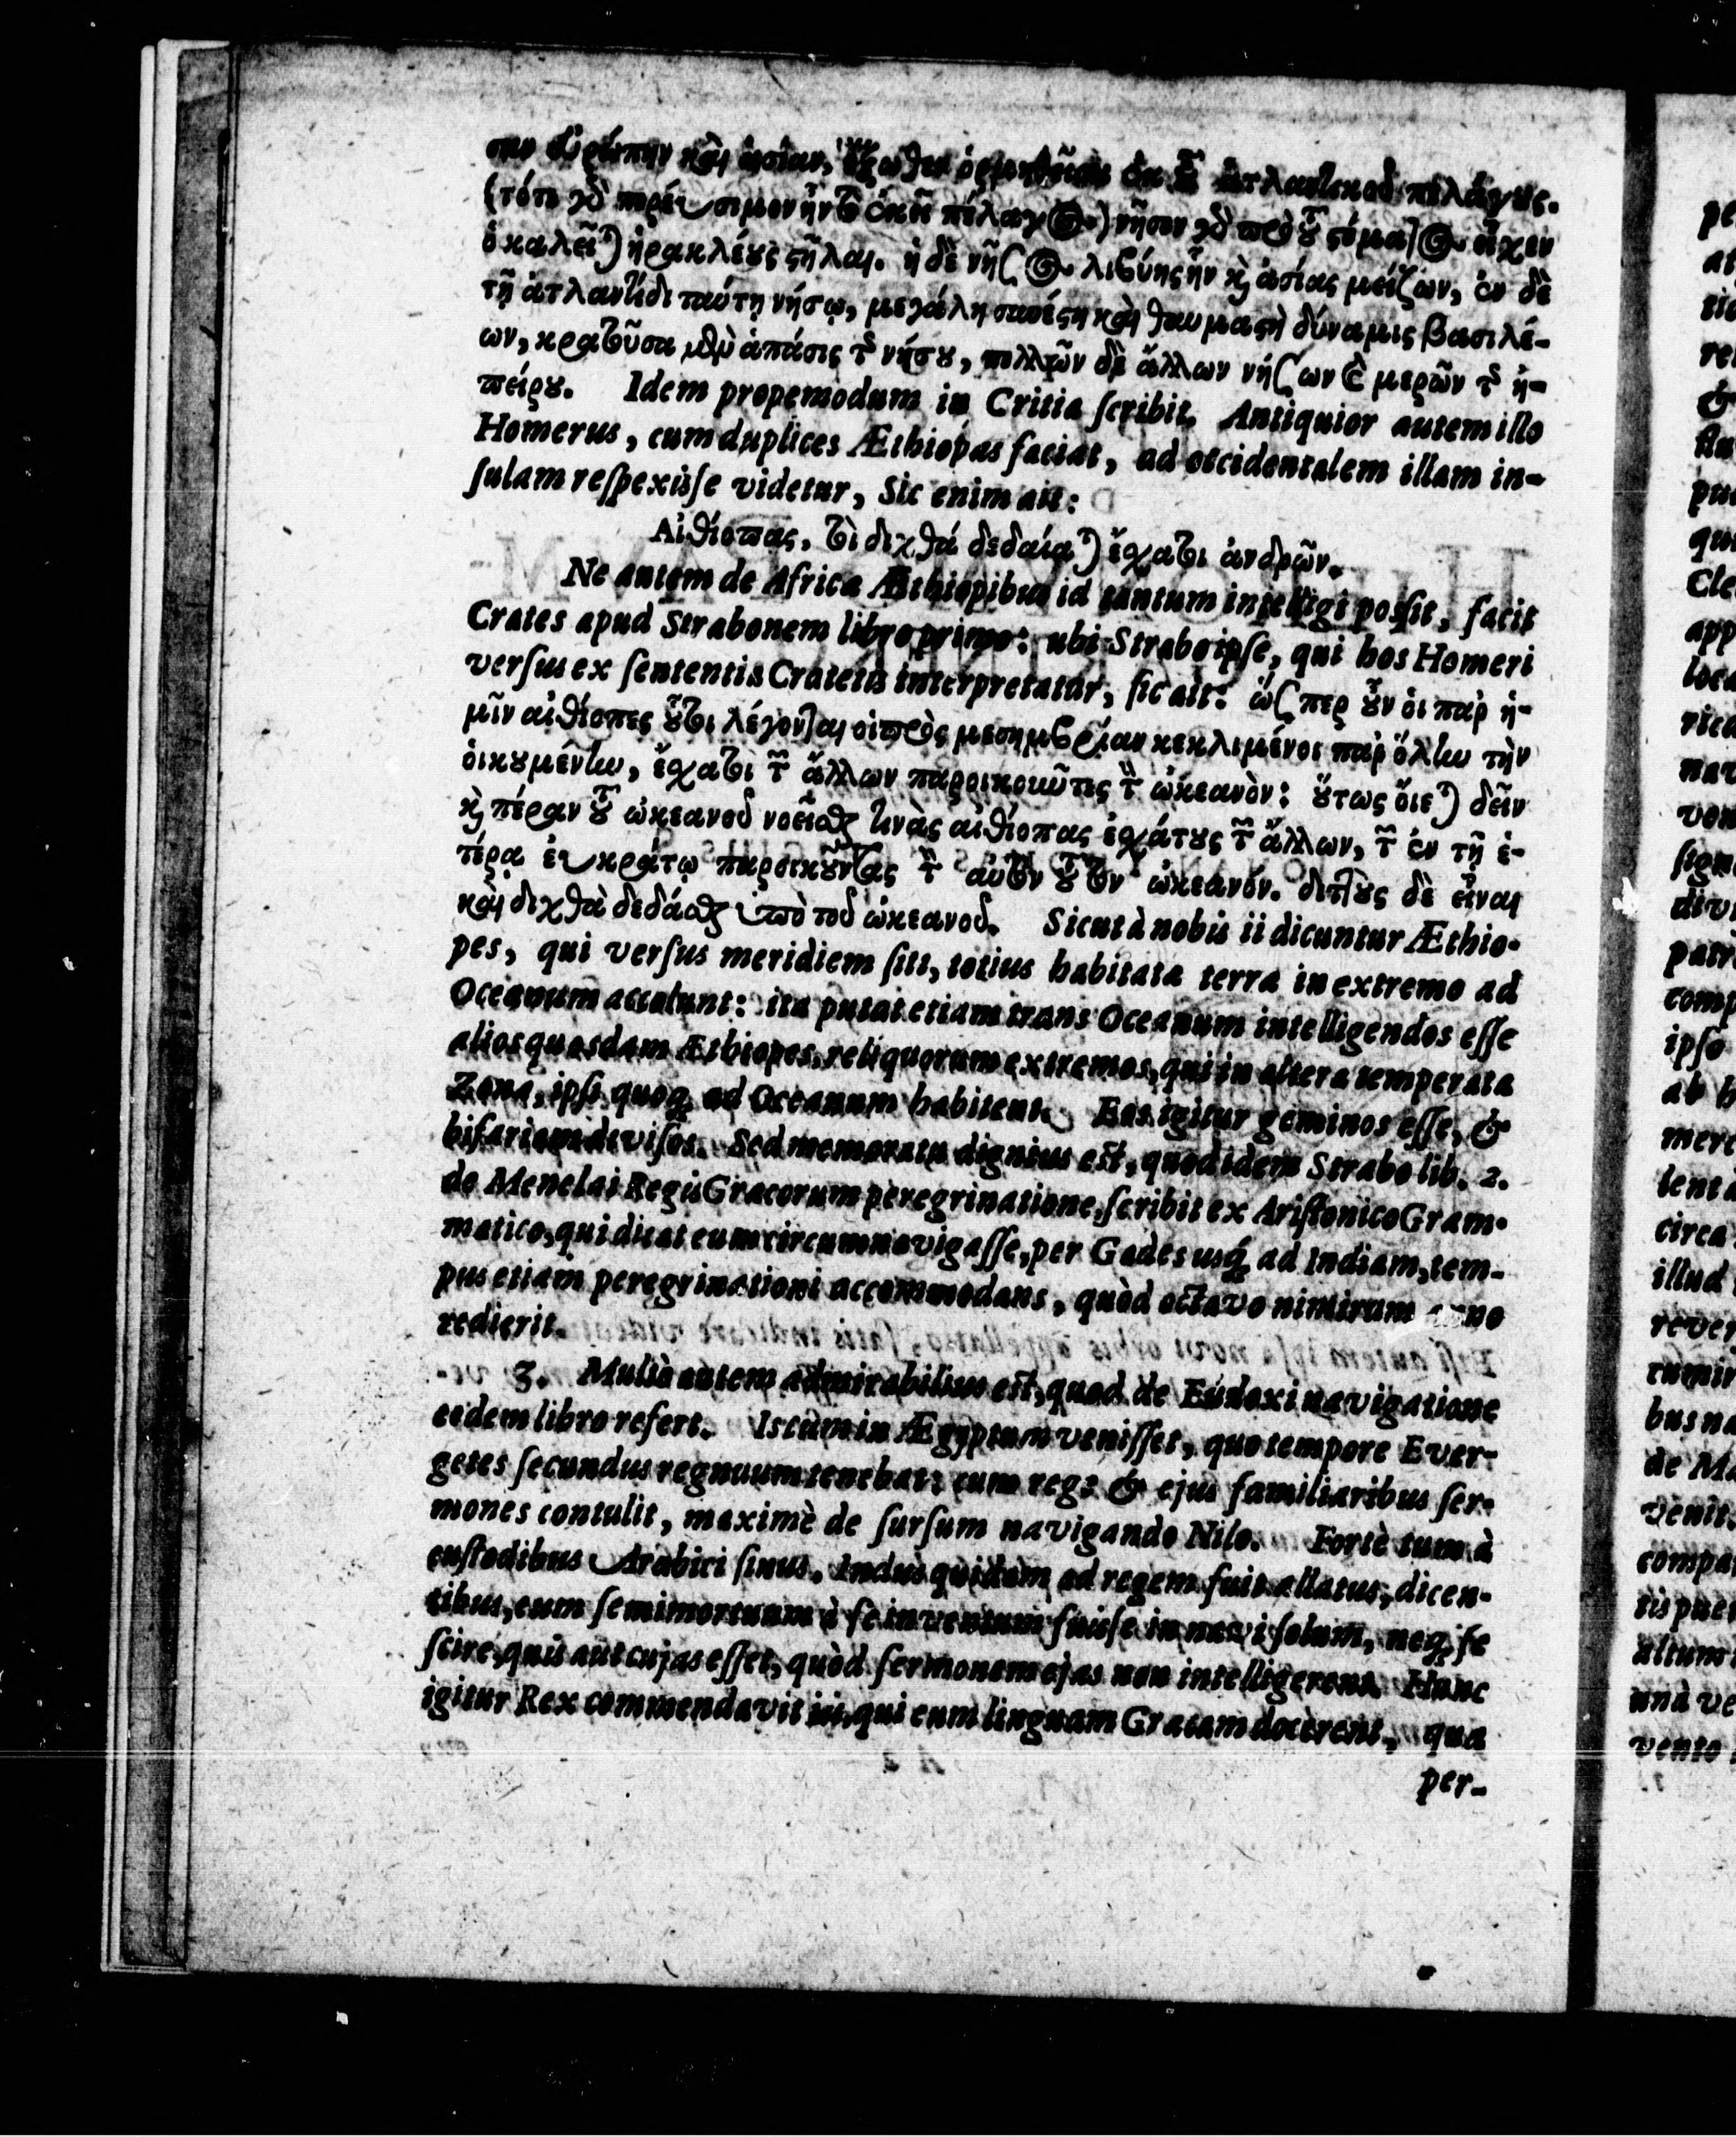 σαν εὐρώπην καὶ ἀσίαν, ἔξωθεν ὁρμηθεῖσαν ἐκ τ̃ ἀτλαντικοῦ πελάγους.
(τότε γὸ πορεύσιμον ἦν τὸ ἐκεῖ πέλαγος) νῆσον γὸ πρὸ τοῦ στόματος εἶχεν
ὁ καλεῖται ἡρακλέους στῆλαι. ἡ δὲ νῆσος λιβύης ἦν κὶ ἀσίας μείζων, ἐν δὲ
τῇ ἀτλαντίδι ταύτῃ νήσῳ, μεγάλη συνέστη καὶ θαυμαστὴ δύναμις βασιλέ-
ων, κρατοῦσα μὲν ἁπάσης τ̃ νήσου, πολλῶν δὲ ἄλλων νήσων καὶ μερῶν τ̃ ἠ-
πείρου. Idem propemodum in Critia ſcribit. Antiquior autem illo
Homerus, cum duplices Æthiopas faciat, ad occidentalem illam in-
ſulam reſpexiſſe videtur, Sic enim ait:
Αἰθίοπας, τοὶ διχθά δεδαίαται ἔσχατοι ἀνδρῶν.
Ne autem de Africæ Æthiopibus id tantum intelligi poſſit, facit
Crates apud Strabonem libro primo: ubi Strabo ipſe, qui hos Homeri
verſus ex ſententia Cratetis interpretatur, ſic ait: ὥσπερ οὖν ὁι παρ ἡ-
μῖν αἰθίοπες οὗτοι λέγονται οἱ πρὸς μεσημβρίαν κεκλιμένοι παρ ὅλην τὴν
ὀικουμένην, ἔσχατοι τ̃ ἄλλων παροικοῦντες τ̃ ὠκεανὸν: οὕτως ὄιεται δεῖν
κὶ πέραν τοῦ ὠκεανοῦ νοεῖσθαι τινὰς αἰθίοπας ἐσχάτους τ̃ ἄλλων, τ̃ ἐν τῇ ἑ-
τέρᾳ ἐυκράτῳ παροικοῦντας τ̃ αὐτὸν τοῦτον ὠκεανόν. διττοὺς δὲ εἶναι
καὶ διχθὰ δεδάσθαι ὑπὸ τοῦ ὠκεανοῦ. Sicut à nobis ii dicuntur Æthio-
pes, qui verſus meridiem ſiti, totius habitatæ terræ in extremo ad
Oceanum accolunt: ita putat etiam trans Oceanum intelligendos eſſe
alios quosdam Æthiopes, reliquorum extremos, qui in altera temperata
Zona, ipſi quoq; ad Oceanum habitent. Eos igitur geminos eſſe, &
bifariam diviſos. Sed memoratu dignius eſt, quod idem Strabo lib. 2.
de Menelai Regis Græcorum peregrinatione, ſcribit ex Ariſtonico Gram-
matico, qui dicat eum circumnavigaſſe, per Gades usq; ad Indiam, tem-
pus etiam peregrinationi accommodans, quòd octavo nimirum anno
redierit.
3. Multò autem admirabilius eſt, quod de Eudoxi navigatione
eodem libro refert. Is cum in Ægyptum veniſſet, quo tempore Ever-
getes ſecundus regnuum tenebat: cum rege & ejus familiaribus ſer-
mones contulit, maximè de ſurſum navigando Nilo. Fortè tum à
cuſtodibus Arabici ſinus, Indus quidam ad regem fuit allatus, dicen-
tibus, eum ſemimortuum à ſe inventum fuiſſe in navi ſolum, neq; ſe
ſcire, quis aut cujas eſſet, quòd ſermonem ejus non intelligerent. Hunc
igitur Rex commendavit iis, qui eum linguam Græcam docerent, qua
per-